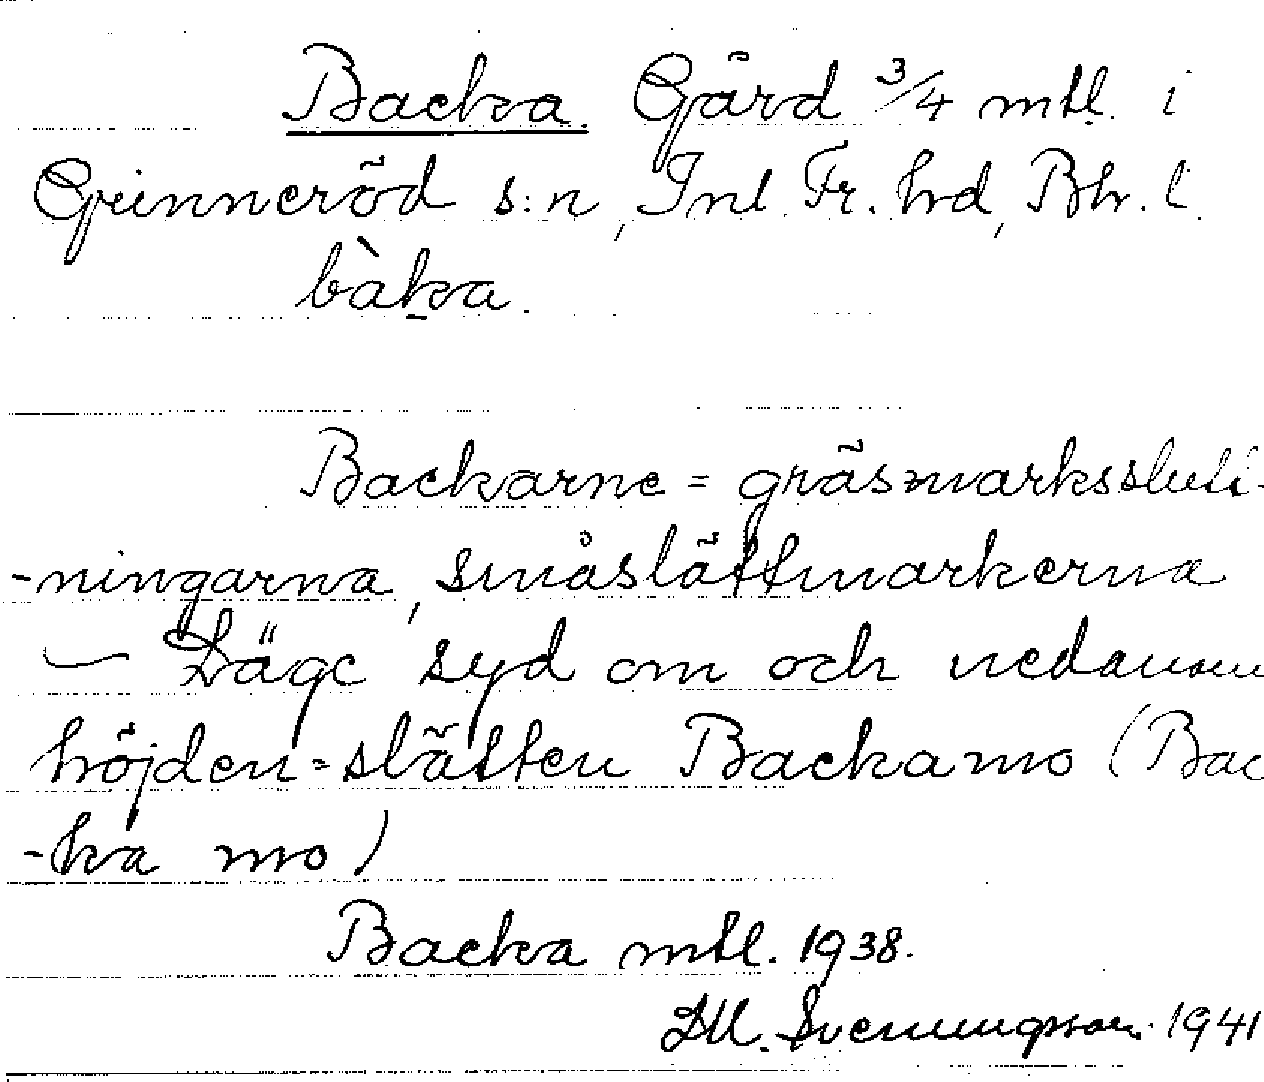 Backa. Gård 3/4 mtl. i
Grinneröd s:n, Inl. Fr. hd, Bhr. l.
bàka.
Backarne = gräsmarksslutt-
-ningarna, småslättmarkerna
— Läge syd om och nedanom
höjden=slätten Backamo (Bac
-ka mo)
Backa mtl. 1938.
Svenungsson 1941